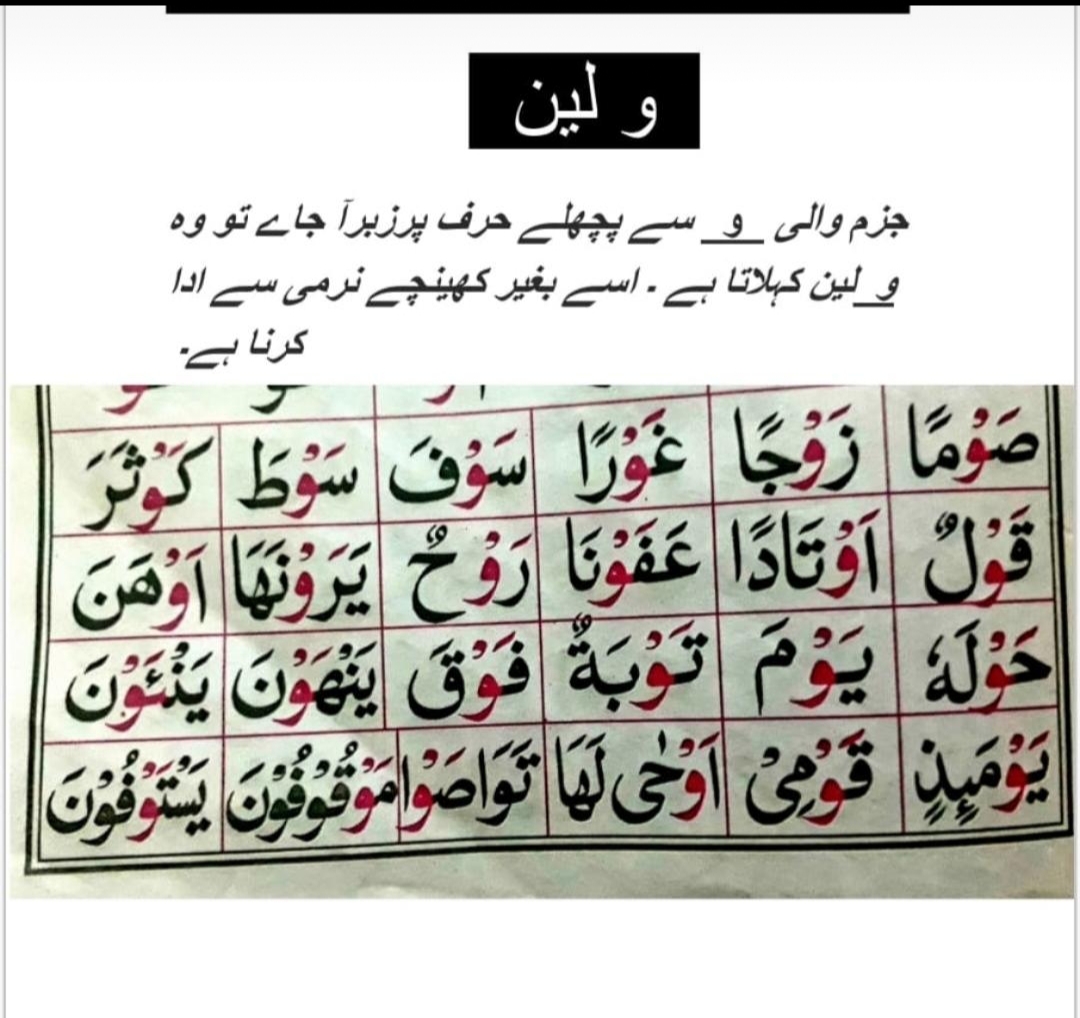 و لین
جزم والی و سے پچھلے حرف پرزبرآ جاے تو وہ
و لین کہلاتا ہے ۔ اسے بغیر کھینچے نرمی سے ادا
کرنا ہے۔
صَوْمًا زَوْجًا غَوْرًا سَوْفَ سَوْطَ كَوْثَرَ
قَوْلٌ اَوْتَادًا عَفَوْنَا رَوْحٌ يَرَوْنَهَا اَوْهَنَ
حَوْلَهٗ يَوْمَ تَوْبَةٌ فَوْقَ يَنْهَوْنَ يَنْئَوْنَ
يَوْمَئِذٍ قَوْمِيْ اَوْحٰى لَهَا تَوَاصَوْا مَوْقُوْفُوْنَ يَسْتَوْفُوْنَ